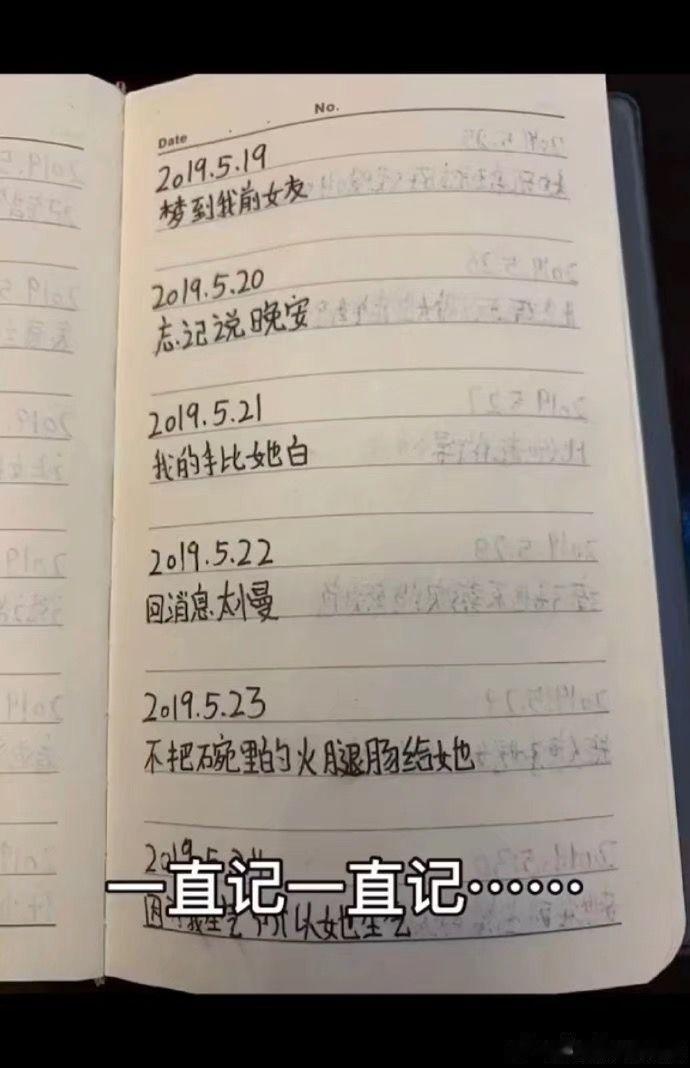 No.
Date
2019.5.19
梦到我前女友
2019.5.20
忘记说晚安
2019.5.21
我的手比她白
2019.5.22
回消息太慢
2019.5.23
不把碗里的火腿肠给她
2019.5.24
一直记一直记……
因为我生气 所以她生气